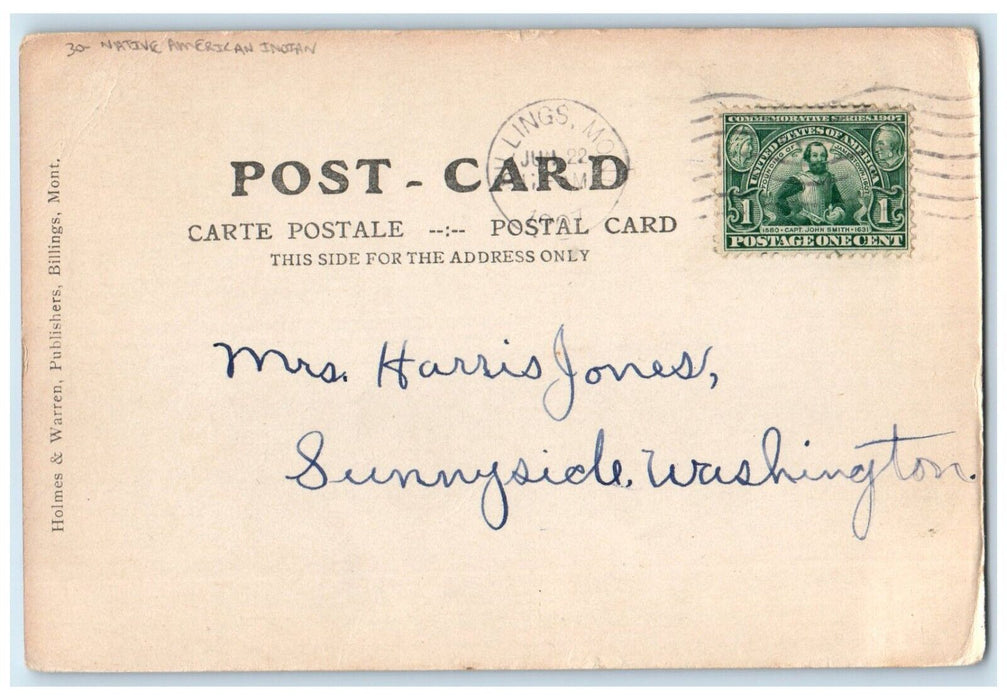 30- NATIVE AMERICAN INDIAN
Holmes & Warren, Publishers, Billings, Mont.
LLINGS, MO
JUN 22
M
1907
POST - CARD
CARTE POSTALE --:-- POSTAL CARD
THIS SIDE FOR THE ADDRESS ONLY
COMMEMORATIVE SERIES, 1907
UNITED STATES OF AMERICA
FOUNDING OF JAMESTOWN 1607
1 1
1580 · CAPT. JOHN SMITH · 1631
POSTAGE ONE CENT
Mrs. Harris Jones,
Sunnyside, Washington.